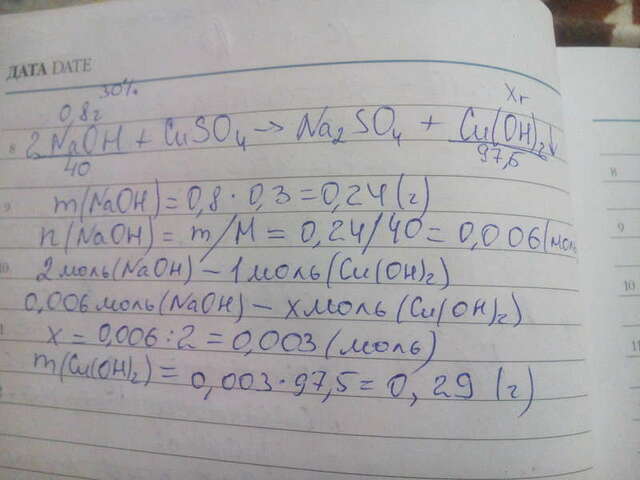 ДАТА DATE
30%
0,8г
Xг
8 2NaOH + CuSO4 → Na2SO4 + Cu(OH)2↓
40
97,5
8
9 m(NaOH) = 0,8 · 0,3 = 0,24 (г)
n(NaOH) = m/M = 0,24/40 = 0,006 (моль
9
10 2 моль (NaOH) – 1 моль (Cu(OH)2)
0,006 моль (NaOH) – x моль (Cu(OH)2)
10
x = 0,006 : 2 = 0,003 (моль)
11
m(Cu(OH)2) = 0,003 · 97,5 = 0,29 (г)